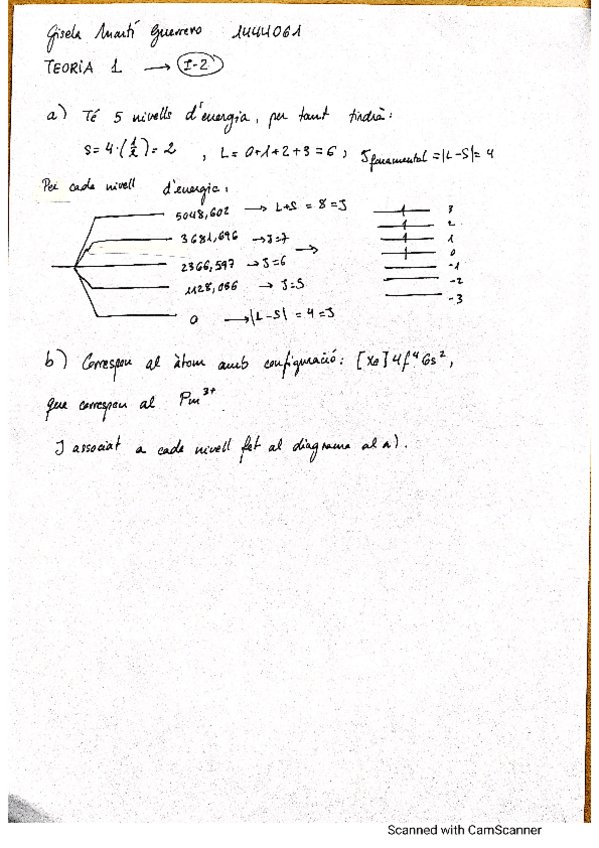 Gisela Martí Guerrero 1444061
TEORIA 1 → I-2
a) Té 5 nivells d'energia, per tant tindrà:
S = 4·(1/2) = 2 , L = 0+1+2+3 = 6 ; Jfonamental = |L-S| = 4
Per cada nivell d'energia:
5048,602 → L+S = 8 = J
3681,696 → J=7 →
2366,597 → J=6
1128,056 → J=5
0 → |L-S| = 4 = J
3
2
1
0
-1
-2
-3
b) Correspon al àtom amb configuració: [Xe] 4f⁴ 6s²,
que correspon al Pm³⁺
J associat a cada nivell fet al diagrama al a).
Scanned with CamScanner